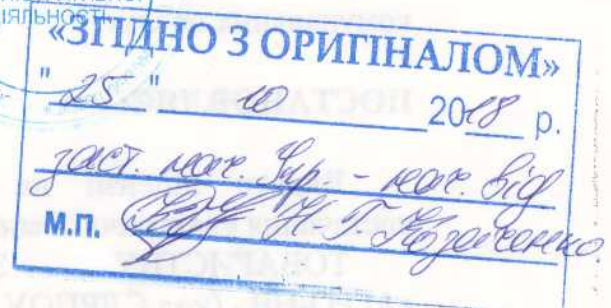 ДІЯЛЬНОСТІ
«ЗГІДНО З ОРИГІНАЛОМ»
"25" 10 2018 р.
заст. нач. Упр. - нач. від
М.П. Н.Г. Козаченко